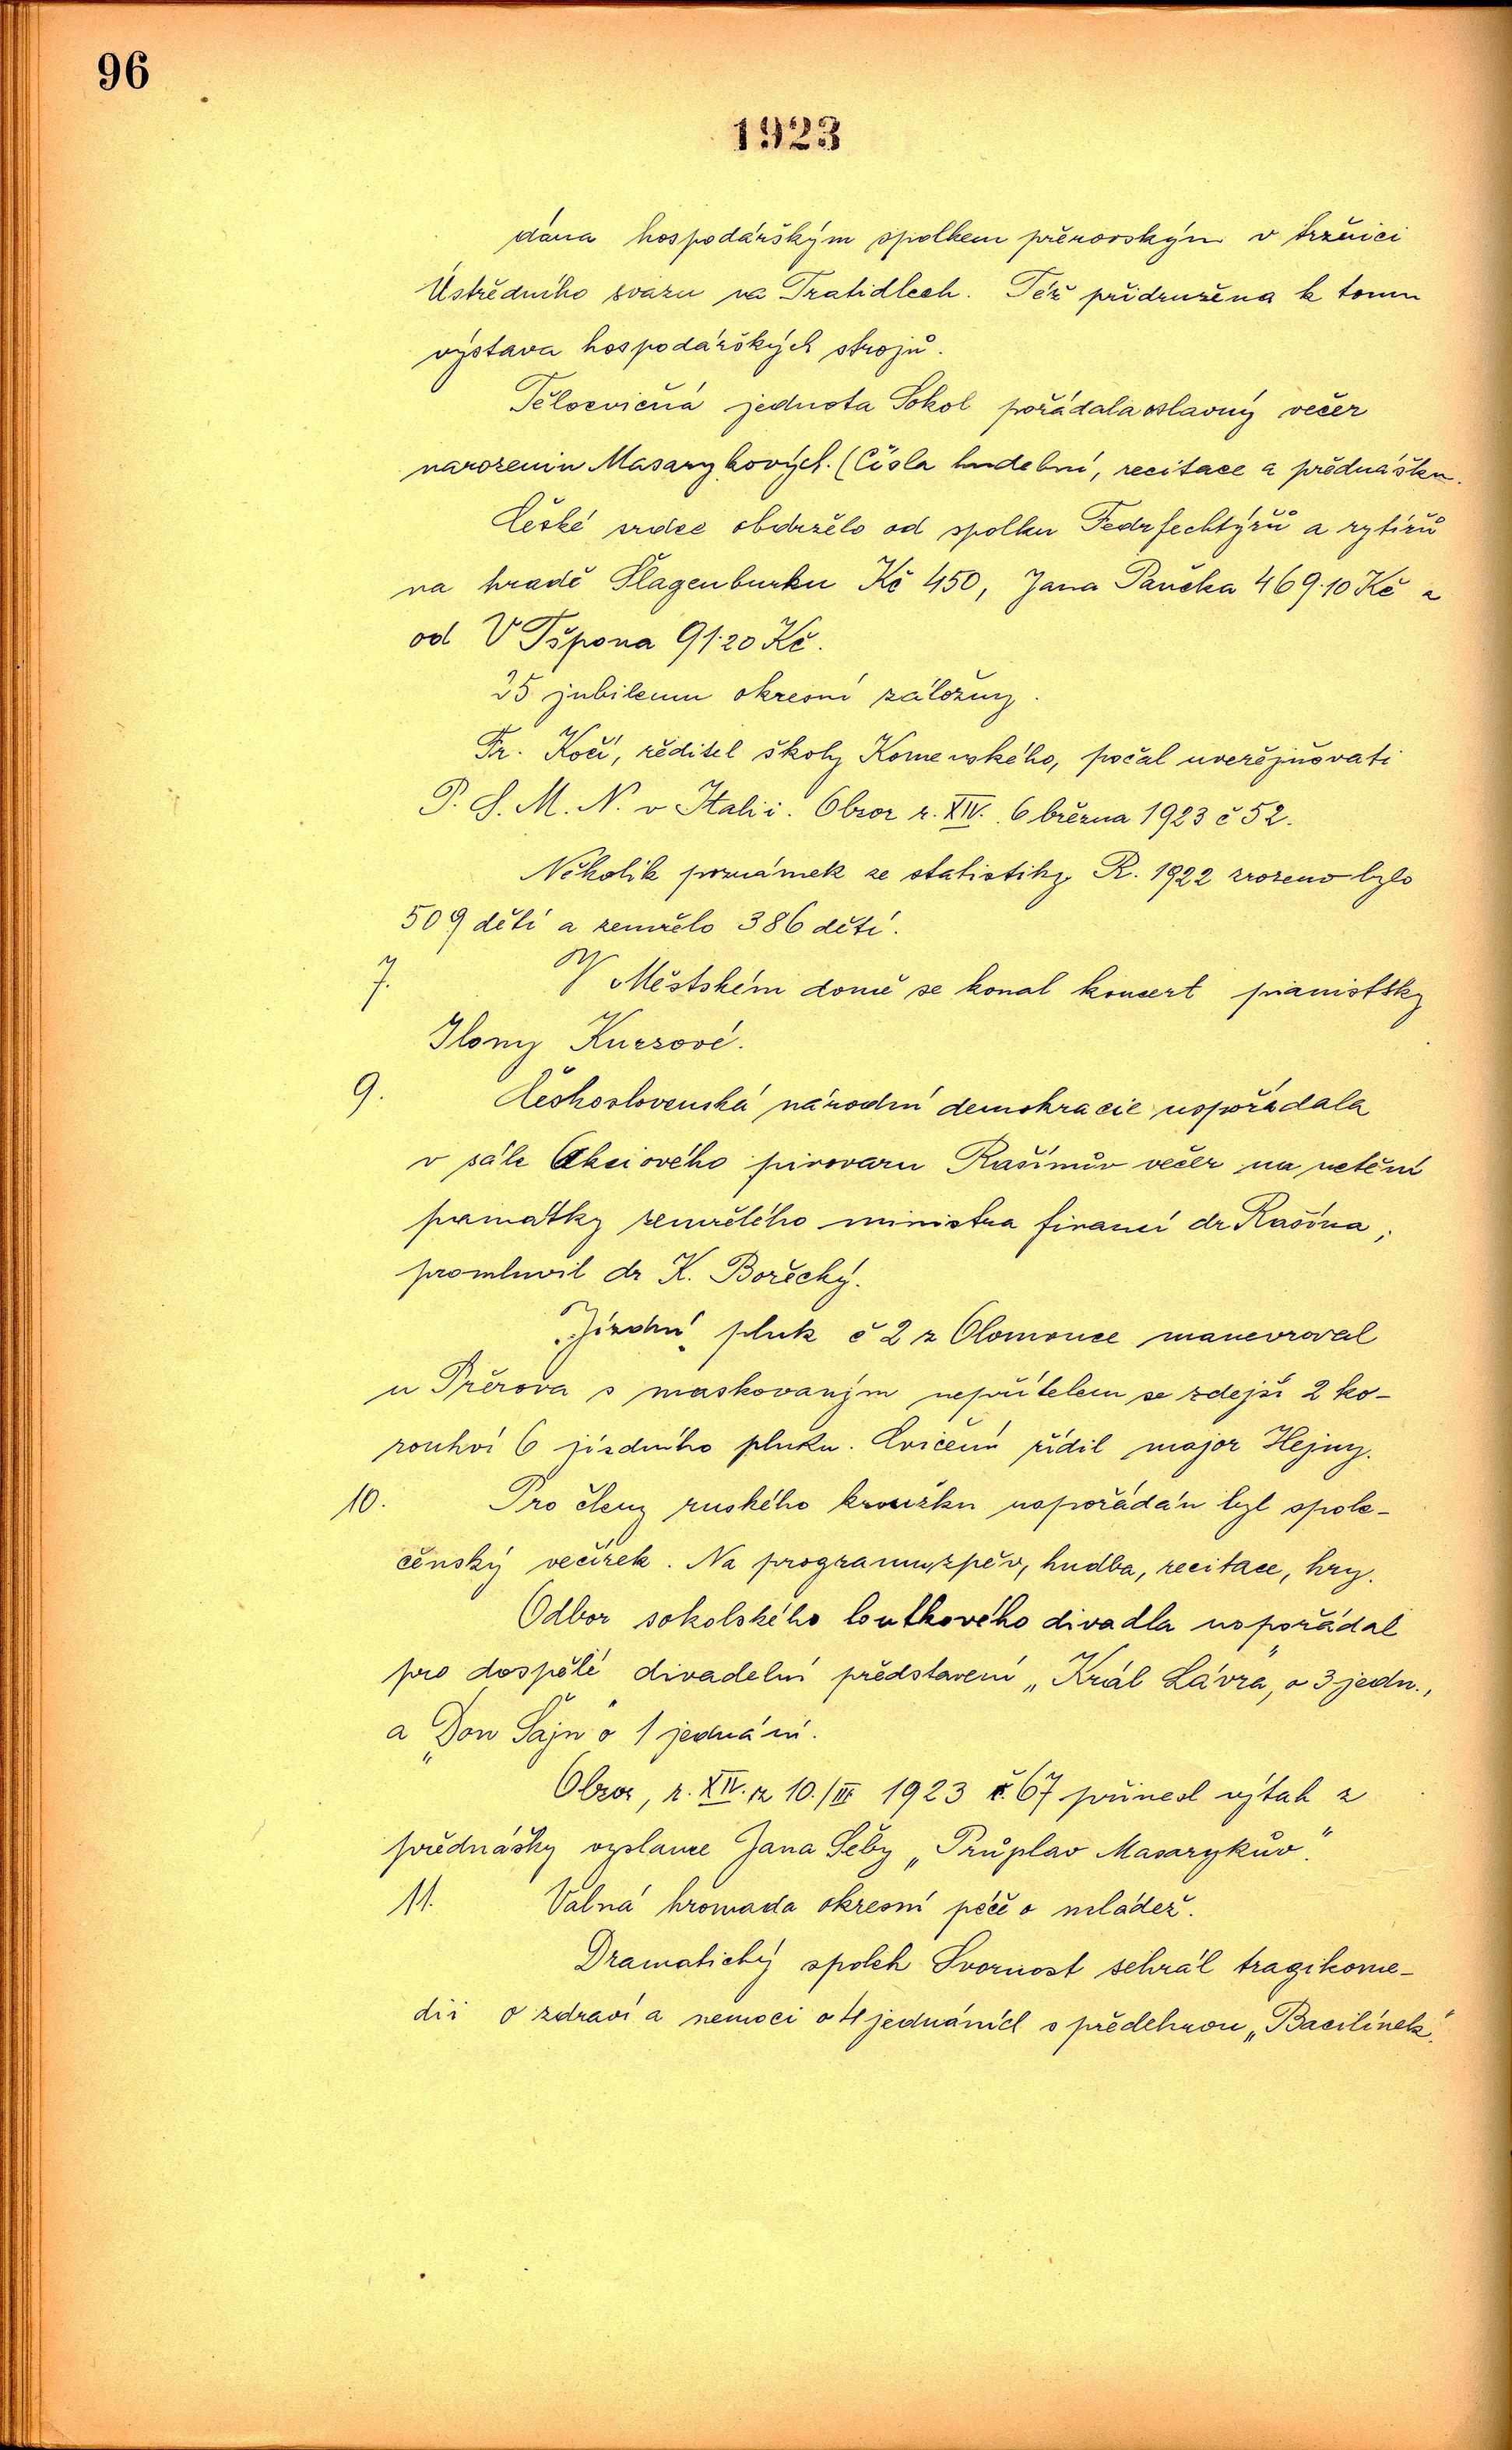 96
1923
dána hospodářským spolkem přerovským v tržnici
Ústředního svazu na Tratidlech. Též přidružena k tomu
výstava hospodářských strojů.
Tělocvičná jednota Sokol pořádala oslavný večer
narozenin Masarykových. (Čísla hudební, recitace a přednášku.
České srdce obdrželo od spolku Fedrfechtýřů a rytířů
na hradě Šlagenburku Kč 450, Jana Pančka 469·10 Kč a
od V Tšpona 91·20 Kč.
25 jubileum okresní záložny.
Fr. Kočí, ředitel školy Komenského, počal uveřejňovati
P. S. M. N. v Italii. Obzor r. XIV. 6 března 1923 č 52.
Několik poznámek ze statistiky. R. 1922 zrozeno bylo
509 dětí a zemřelo 386 dětí.
7. V Městském domě se konal koncert pianistky
Ilony Kurzové.
9. Československá národní demokracie uspořádala
v sále Akciového pivovaru Rašínův večer na uctění
památky zemřelého ministra financí dr Rašína,
promluvil dr K. Bořecký.
Jízdní pluk č 2 z Olomouce manevroval
u Přerova s maskovaným nepřítelem se zdejší 2 ko-
rouhví 6 jízdního pluku. Cvičení řídil major Hejny.
10. Pro členy ruského kroužku uspořádán byl spole-
čenský večírek. Na programu, zpěv, hudba, recitace, hry.
Odbor sokolského loutkového divadla uspořádal
pro dospělé divadelní představení „Král Lávra", o 3 jedn.,
a „Don Šajn" o 1 jednání.
Obzor, r. XIV. z 10./III 1923 č. 67 přinesl výtah z
přednášky vyslance Jana Šeby „Průplav Masarykův".
11. Valná hromada okresní péče o mládež.
Dramatický spolek Svornost sehrál tragikome-
dii o zdraví a nemoci o 4 jednáních s předehrou „Bacilínek".